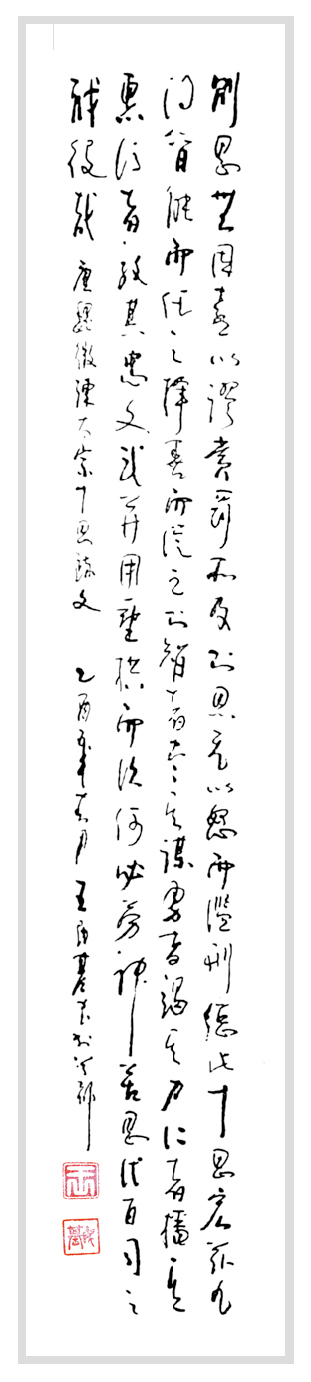 則思無因喜以謬賞罰所及則思無以怒而濫刑總此十思宏茲九
德簡能而任之擇善而從之則智者盡其謀勇者竭其力仁者播其
惠信者效其忠文武並用垂拱而治何必勞神苦思代百司之
職役哉 唐魏徵諫太宗十思疏文 乙酉年春月王 基書於